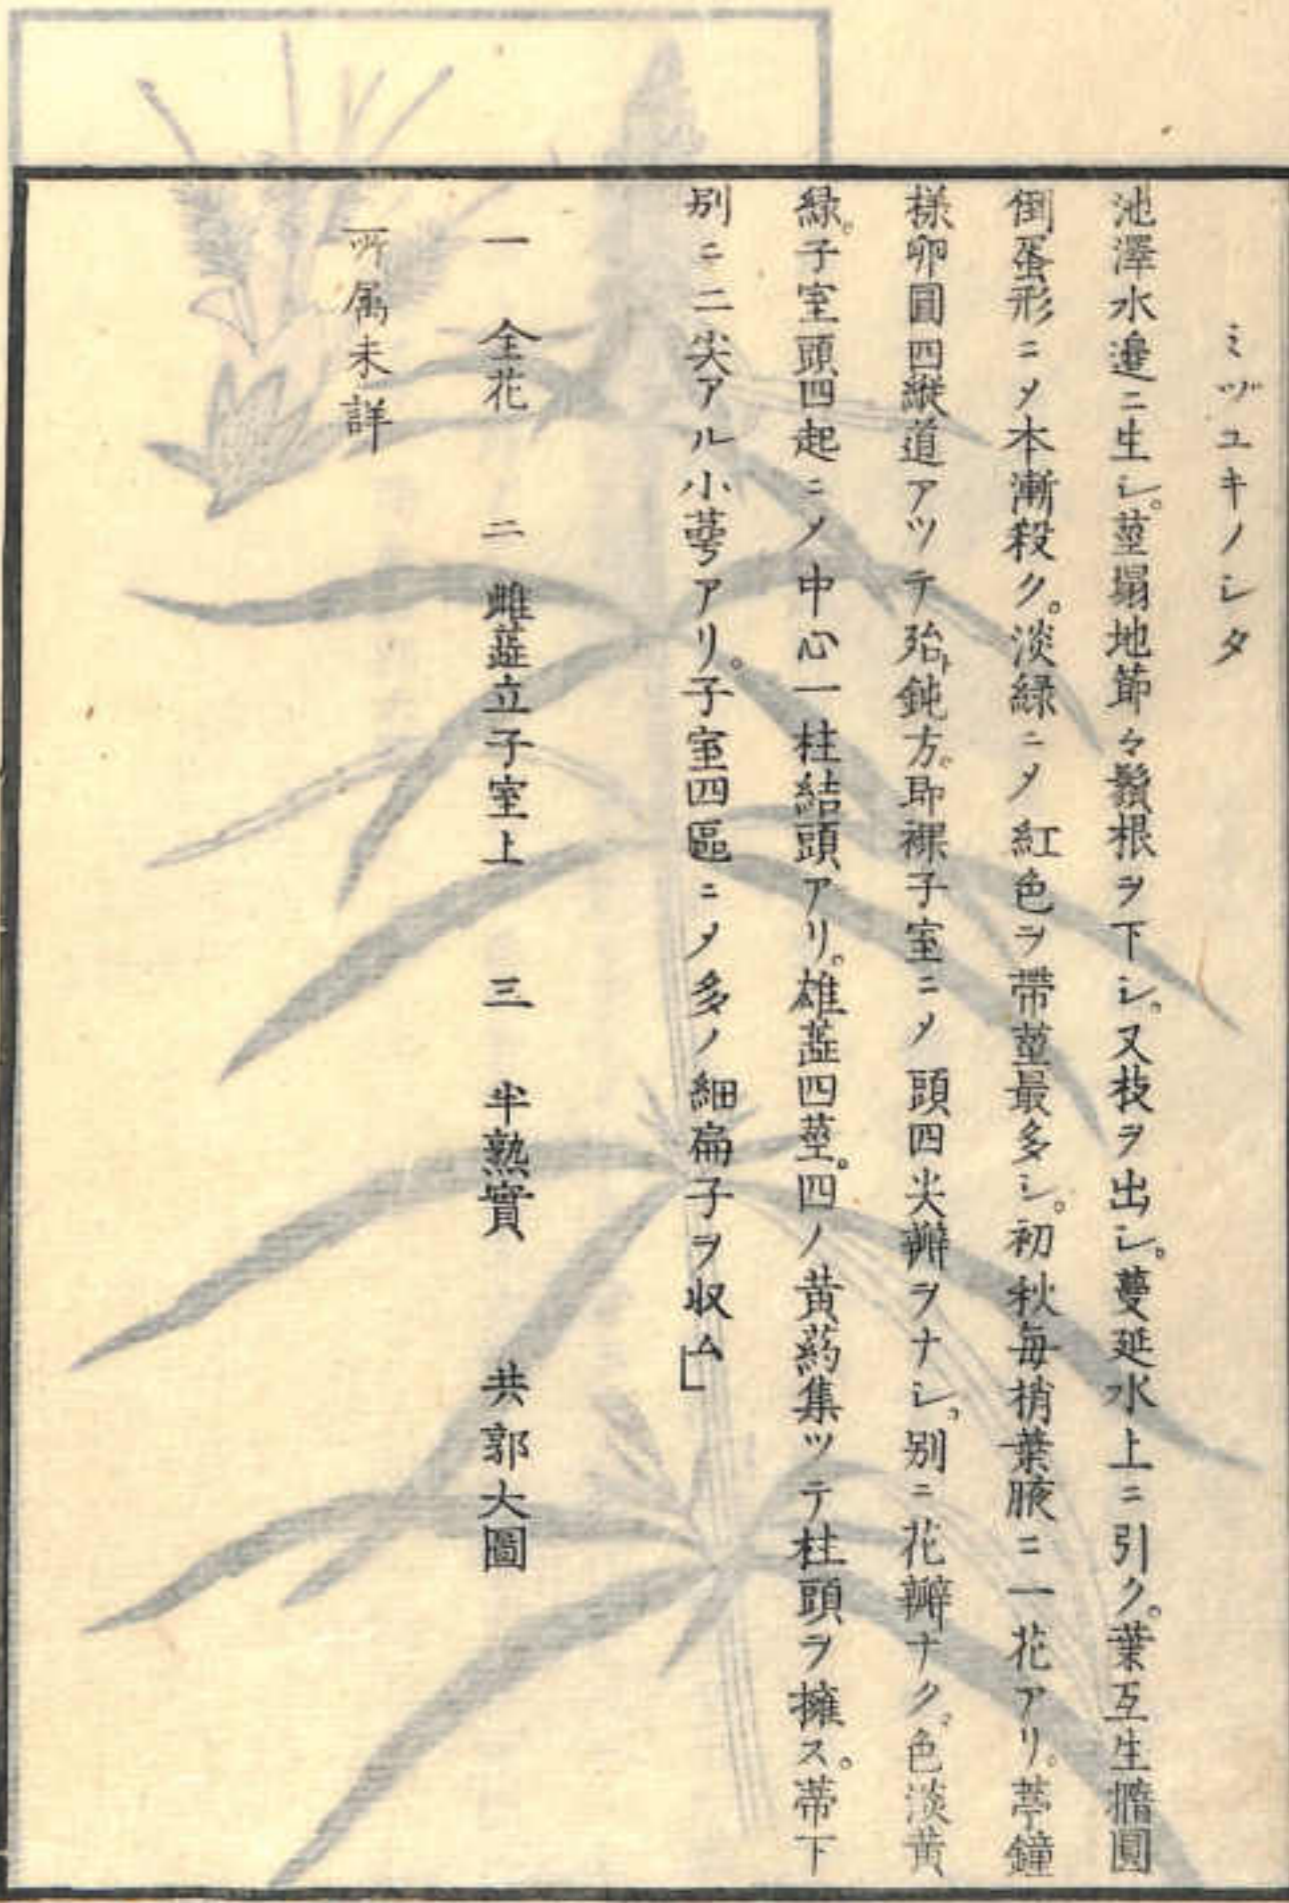 ミヅユキノシタ
池澤水邉ニ生シ。莖塌地節々鬚根ヲ下シ。又枝ヲ出シ。蔓延水上ニ引ク。葉互生橢圓
倒蛋形ニメ本漸殺ク。淡緑ニメ紅色ヲ帶莖最多シ。初秋毎梢葉腋ニ一花アリ。萼鐘
様卵圓四縦道アツテ殆ト鈍方。即裸子室ニメ頭四尖瓣ヲナシ。別ニ花瓣ナク。色淡黄
緑。子室頭四起ニメ中心一柱結頭アリ。雄蕋四莖。四ノ黄葯集ツテ柱頭ヲ擁ス。蒂下
別ニ二尖アル小萼アリ。子室四區ニメ多ノ細扁子ヲ収ム」
一 全花 二 雌蕋立子室上 三 半熟實 共郭大圖
所属未詳